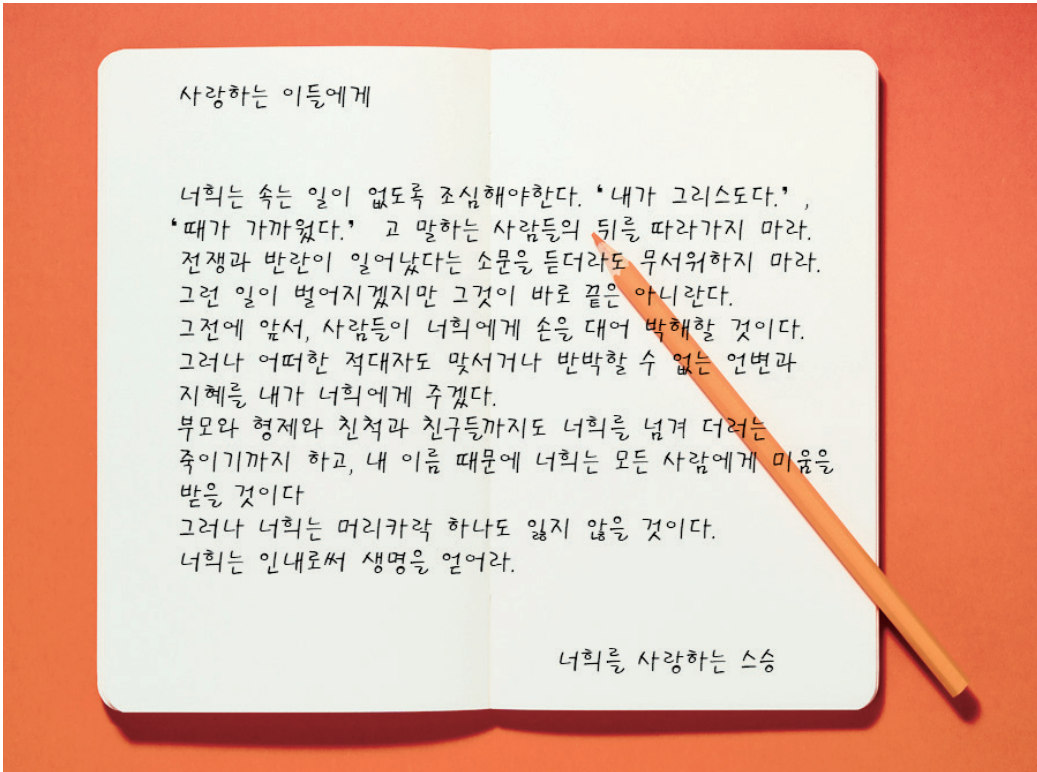 사랑하는 이들에게
너희는 속는 일이 없도록 조심해야한다. ‘내가 그리스도다.’ ,
‘때가 가까웠다.’ 고 말하는 사람들의 뒤를 따라가지 마라.
전쟁과 반란이 일어났다는 소문을 듣더라도 무서워하지 마라.
그런 일이 벌어지겠지만 그것이 바로 끝은 아니란다.
그전에 앞서, 사람들이 너희에게 손을 대어 박해할 것이다.
그러나 어떠한 적대자도 맞서거나 반박할 수 없는 언변과
지혜를 내가 너희에게 주겠다.
부모와 형제와 친척과 친구들까지도 너희를 넘겨 더러는
죽이기까지 하고, 내 이름 때문에 너희는 모든 사람에게 미움을
받을 것이다
그러나 너희는 머리카락 하나도 잃지 않을 것이다.
너희는 인내로써 생명을 얻어라.
너희를 사랑하는 스승